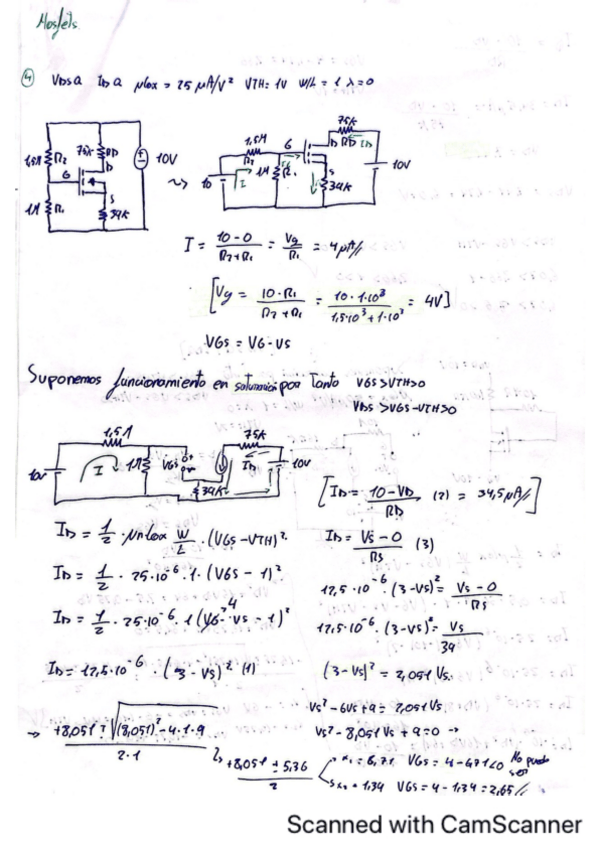 Mosfets
④ VDSQ IDQ μCox = 25 μA/V² VTH = 1V W/L = 1 λ=0
1,5M R2 75K RD D G S 1M R1 39K 10V
~> 10 I 1,5M R2 1M R1 G D S 75K RD ID 39K 10V
I = (10-0)/(R2+R1) = Vg/R1 = 4 μA//
[Vg = (10·R1)/(R2+R1) = (10·1·10³)/(1,5·10³+1·10³) = 4V]
VGS = VG-VS
Suponemos funcionamiento en saturacion por Tanto VGS>VTH>0
VDS >VGS-VTH>0
10V I 1,5M 1M VGS 39K 75K ID 10V
[ID = (10-VD)/RD (2) = 34,5μA//]
ID = 1/2 · μnCox W/L · (VGS-VTH)²
ID = (VS-0)/RS (3)
ID = 1/2 · 25·10⁻⁶ · 1 · (VGS - 1)²
12,5·10⁻⁶ · (3-VS)² = (VS-0)/RS
ID = 1/2 · 25·10⁻⁶ · 1 (VG⁴ - VS - 1)²
12,5·10⁻⁶ · (3-VS)² = VS/39
ID = 12,5·10⁻⁶ · (3 - VS)² (1)
(3-VS)² = 2,051 VS.
VS² - 6VS + 9 = 2,051 VS
VS² - 8,051 VS + 9 = 0 →
→ (+8,051 ± √((8,051)² - 4·1·9))/(2·1)
(+8,051 ± 5,36)/2
x1 = 6,71 VGS = 4-6,71<0 No puede ser
x2 = 1,34 VGS = 4-1,34 = 2,65//
Scanned with CamScanner